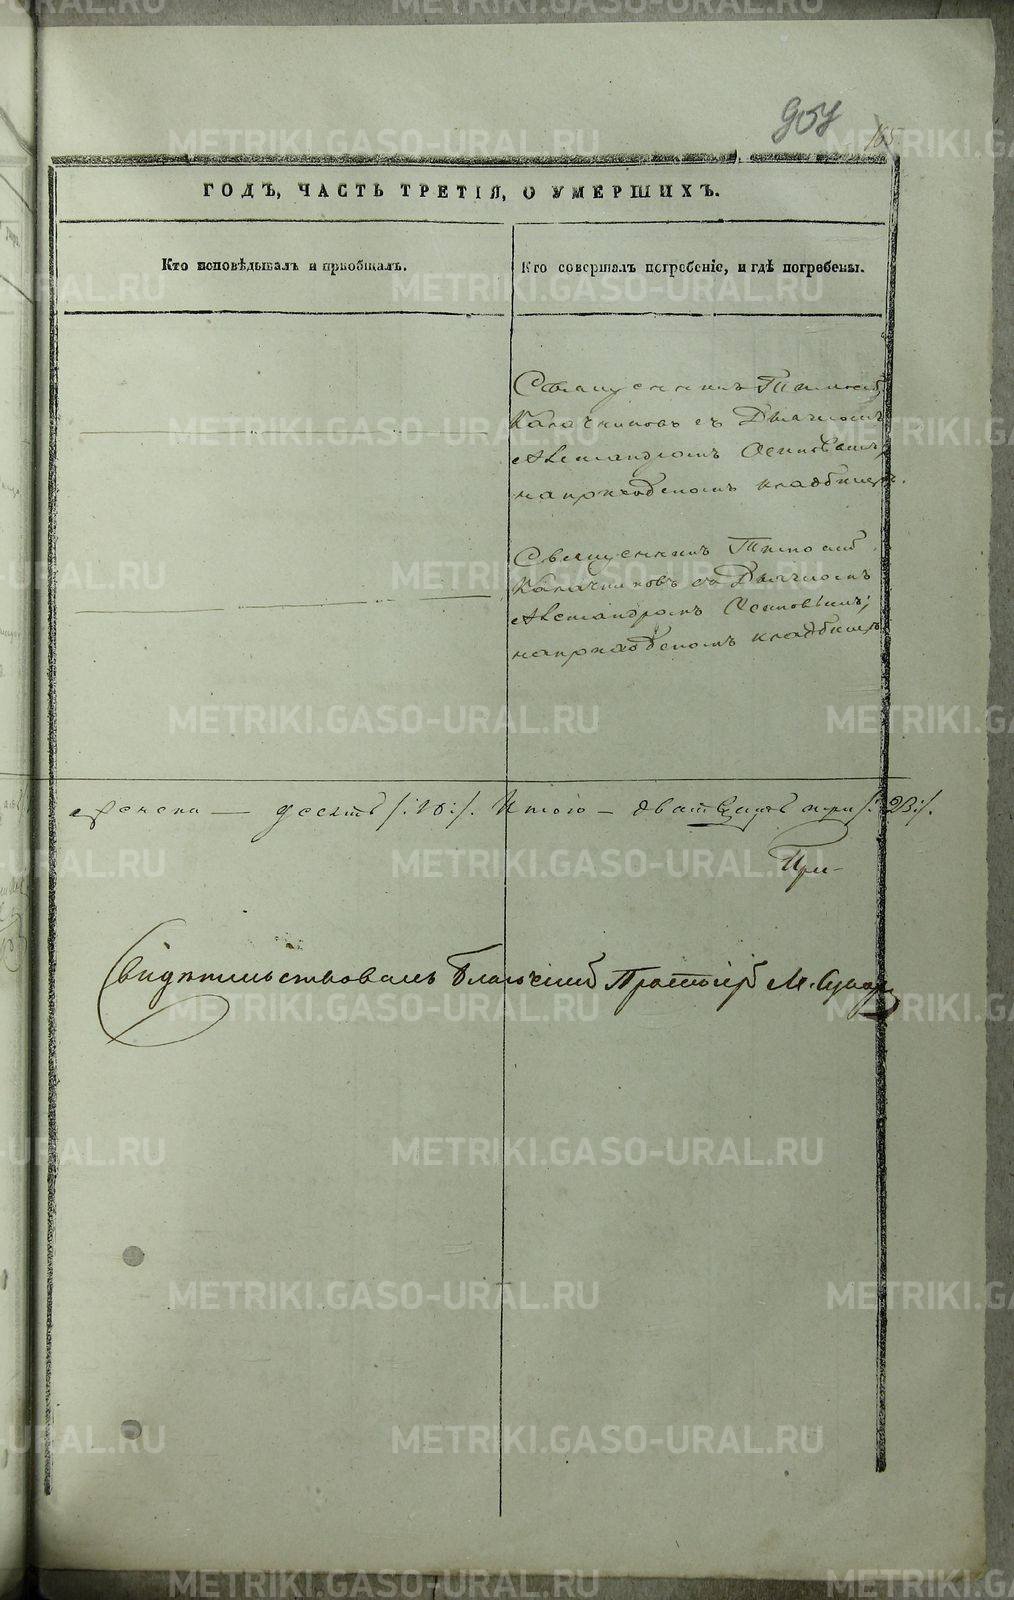 957 165
ГОДЪ, ЧАСТЬ ТРЕТІЯ, О УМЕРШИХЪ.
Кто исповѣдывалъ и пріобщалъ.
Кто совершалъ погребеніе, и гдѣ погребены.
Священникъ Тимоѳей
Калачниковъ съ Дьячкомъ
Александромъ Осиповымъ,
на приходскомъ кладбищѣ.
Священникъ Тимоѳей
Калачниковъ съ Дьячкомъ
Александромъ Осиповымъ;
на приходскомъ кладбищѣ
женска — десять /:10:/. Итого — дватцать три /:23:/.
При-
Свидѣтельствовалъ Благочинный Протоіерей М.
METRIKI.GASO-URAL.RU